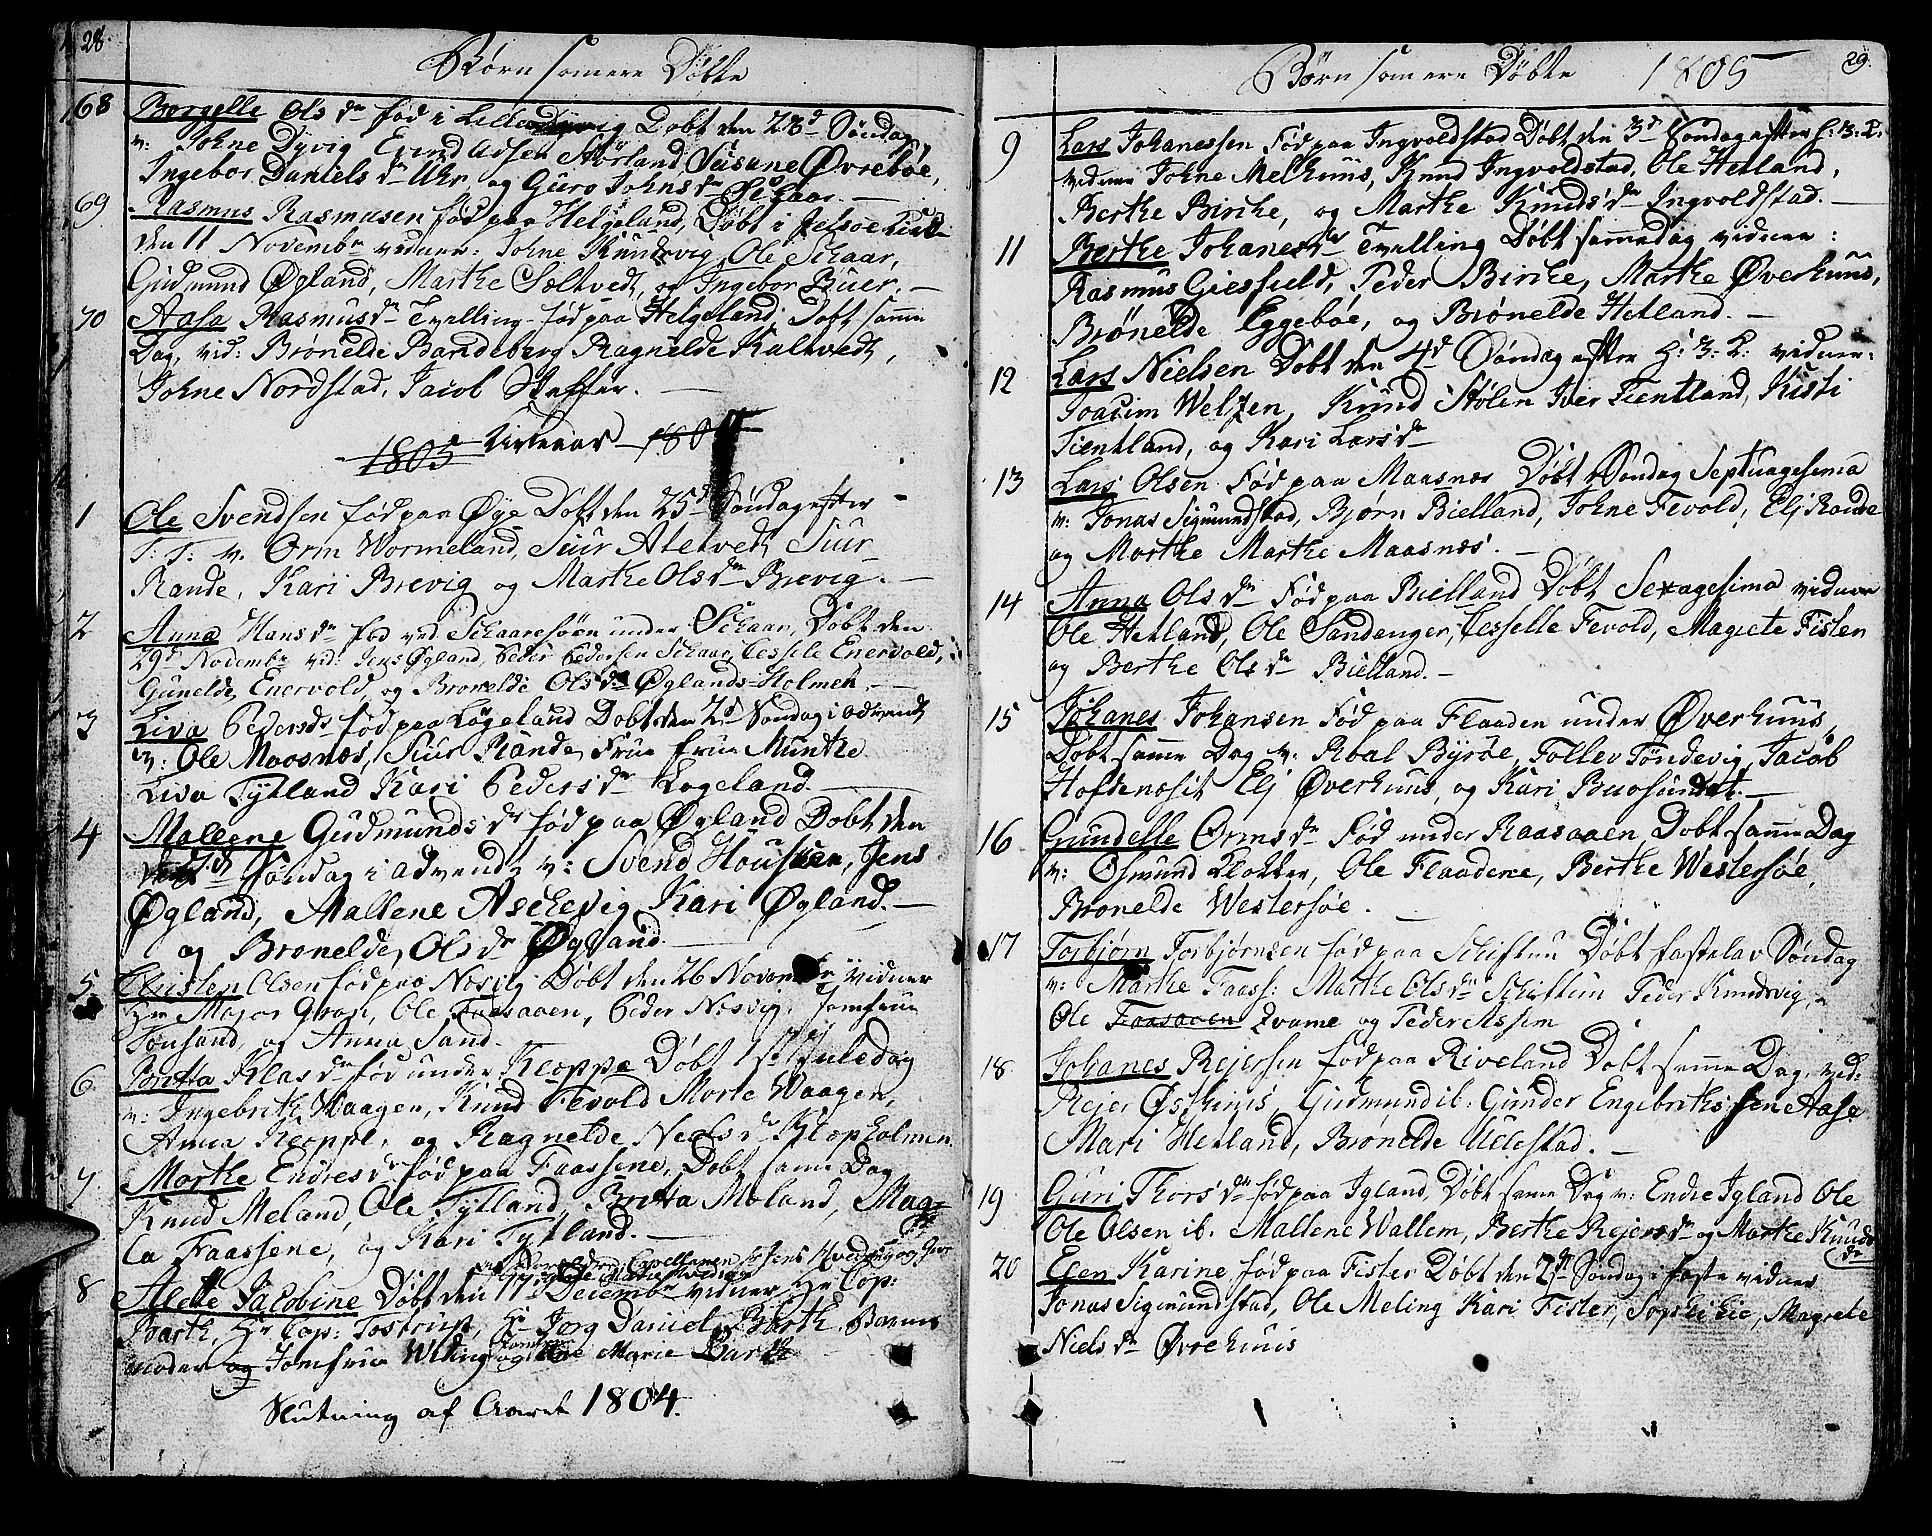 28.
Børn som ere Døbte
68 Borgelle Ols dr fød i Døbt den 23d Søndag,
v: Johne Dyvig Susane Øvrebøe,
Ingebor Daniels dr Uhr og Guro Johns dr
69 Rasmus Rasmusen fød paa Helgeland, Døbt i Jelsøe
den 11 Novembr vidner: Johne Knudsvig, Ole Schaar,
Gudmund Øgland, Marthe Saltvedt, og Ingebor Buer. –
70 Aasa Rasmusdr Tvelling fød paa Helgeland Døbt samme
Dag, vid: Brønelde Bandeberg Ragnelde Kaltvedt,
Johne Nordstad, Jacob Steffer. –
1805
1 Ole Svendsen fød paa Øye Døbt den 25d Søndag efter
T: T: v. Orm Wormeland, Siur Aletvedt Siur
Rande, Kari Brevig og Marthe Ols dr Brevig. –
2 Anna Hans dr fød ved Schaaresøen under Schaar, Døbt den
29d Novembr vid: Jens Øgland, Peder Pedersen Schaar, Tesele Enervold,
Gunelde Enervold og Bronelde Ols dr Øglands-Holmen. –
3 Liva Peders dr fød paa Løgeland Døbt den 2d Søndag i Advendt
v: Ole Maasnæs, Siur Rande, Frue Munthe
Liva Tytland Kari Peders dr Løgeland. –
4 Mallene Gudmunds dr fød paa Øgland Døbt den
Søndag i Advendt v: Svend Jens
Øgland, Mallene Aschevig Kari Øgland. –
og Bronelde Ols dr Øgland –
5 Christen Olsen fød paa Nosvig Døbt den 26 Novembr vidner
Hr Major Grop, Ole Faasaaen, Peder Nosvig, Jomfrue
Tonsand, og Anna Sand.
6 Klas dr fød under Kloppe Døbt 1st Juledag
v: Ingebrith Waagen, Knud Fevold Morte Waagen,
Anna Kloppe, og Ragnelde Neels dr Klopholmen
7. Marthe Endres dr fød paa Faassene, Døbt samme Dag
Knud Meland, Ole Tytland, Britta Moland, Mag-
la Faassene, og Kari Tytland. –
8 Alette Jacobine Døbt den 17d Decembr vidner Hr Cop:
Barth, Hr Cop: Tostrup, Hr Jorg Daniel Barth, Barnets
moder og Jomfrue Widing Marie Barth
Slutning af Aaret 1804.
Børn som ere Døbte 1805 29.
9 Lars Johanessen Fød paa Ingvoldstad Døbt den 3d Søndag efter H: 3: K:
vidner Johne Melhuus, Knud Ingvoldstad, Ole Hetland,
Berthe Birche, og Marthe Knuds dr Ingvoldstad. –
11 Berthe Johanes dr Tvelling Døbt samedag vidner:
Rasmus Giesfield, Peder Birche, Marthe Øverhuus,
Brønelde Eggebøe, og Brønelde Hetland. –
12 Lars Nielsen Døbt den 4d Søndag efter H: 3: K: vidner:
Joacim Weltzen, Knud Stølen Iver Tientland, Kisti
Tientland, og Kari Lars dr
13 Lars Olsen Fød paa Maasnæs Døbt Søndag Septuagesima
v: Jonas Sigmundstad, Bjørn Bielland, Johne Fevold, Eli Rande
og Morthe Marthe Maasnæs. –
14 Anna Ols dr Fød paa Bielland Døbt Sexagesima vidner
Ole Hetland, Ole Sandenger, Tesselle Fevold, Magrete Fisten
og Berthe Ols dr Bielland. –
15 Johanes Johansen Fød paa Flaaden under Øverhuus,
Døbt samme Dag v: Roal Byrøe, Follev Tøndevig, Jacob
Hofdenæsit Eli Øverhuus, og Kari Buosundet. –
16 Gundelle Orms dr Fød under Raasaaen Døbt samme Dag
v: Osmund Klokker, Ole Flaadene, Berthe Westersøe,
Bronelde Westersøe. –
17 Torbjørn Torbjørnsen fød paa Schiftun Døbt fastelav Søndag
v: Marthe Faass: Marthe Ols dr Schiftun Peder Knudsvig,
Ole Faasaaen Qvame og Peder Assem
18 Johanes Rejersen fød paa Riveland Døbt samme Dag, vid:
Rejer Østhuus, Gudmund ib. Gunder Engebrithssen Aase
Mari Hetland, Brønelde Ullestad. –
19 Guri Thors dr fød paa Igland, Døbt samme Dag v: Endre Igland Ole
Ole Olsen ib. Mallene Wallem, Berthe Rejers dr og Marthe Knuds
dr
20 Elen Karine fød paa Fister Døbt den 2d Søndag i faste vidner
Jonas Sigmundstad, Ole Meling Kari Fister, Sophi Lie, Magrete
Niels dr Øvrehuus